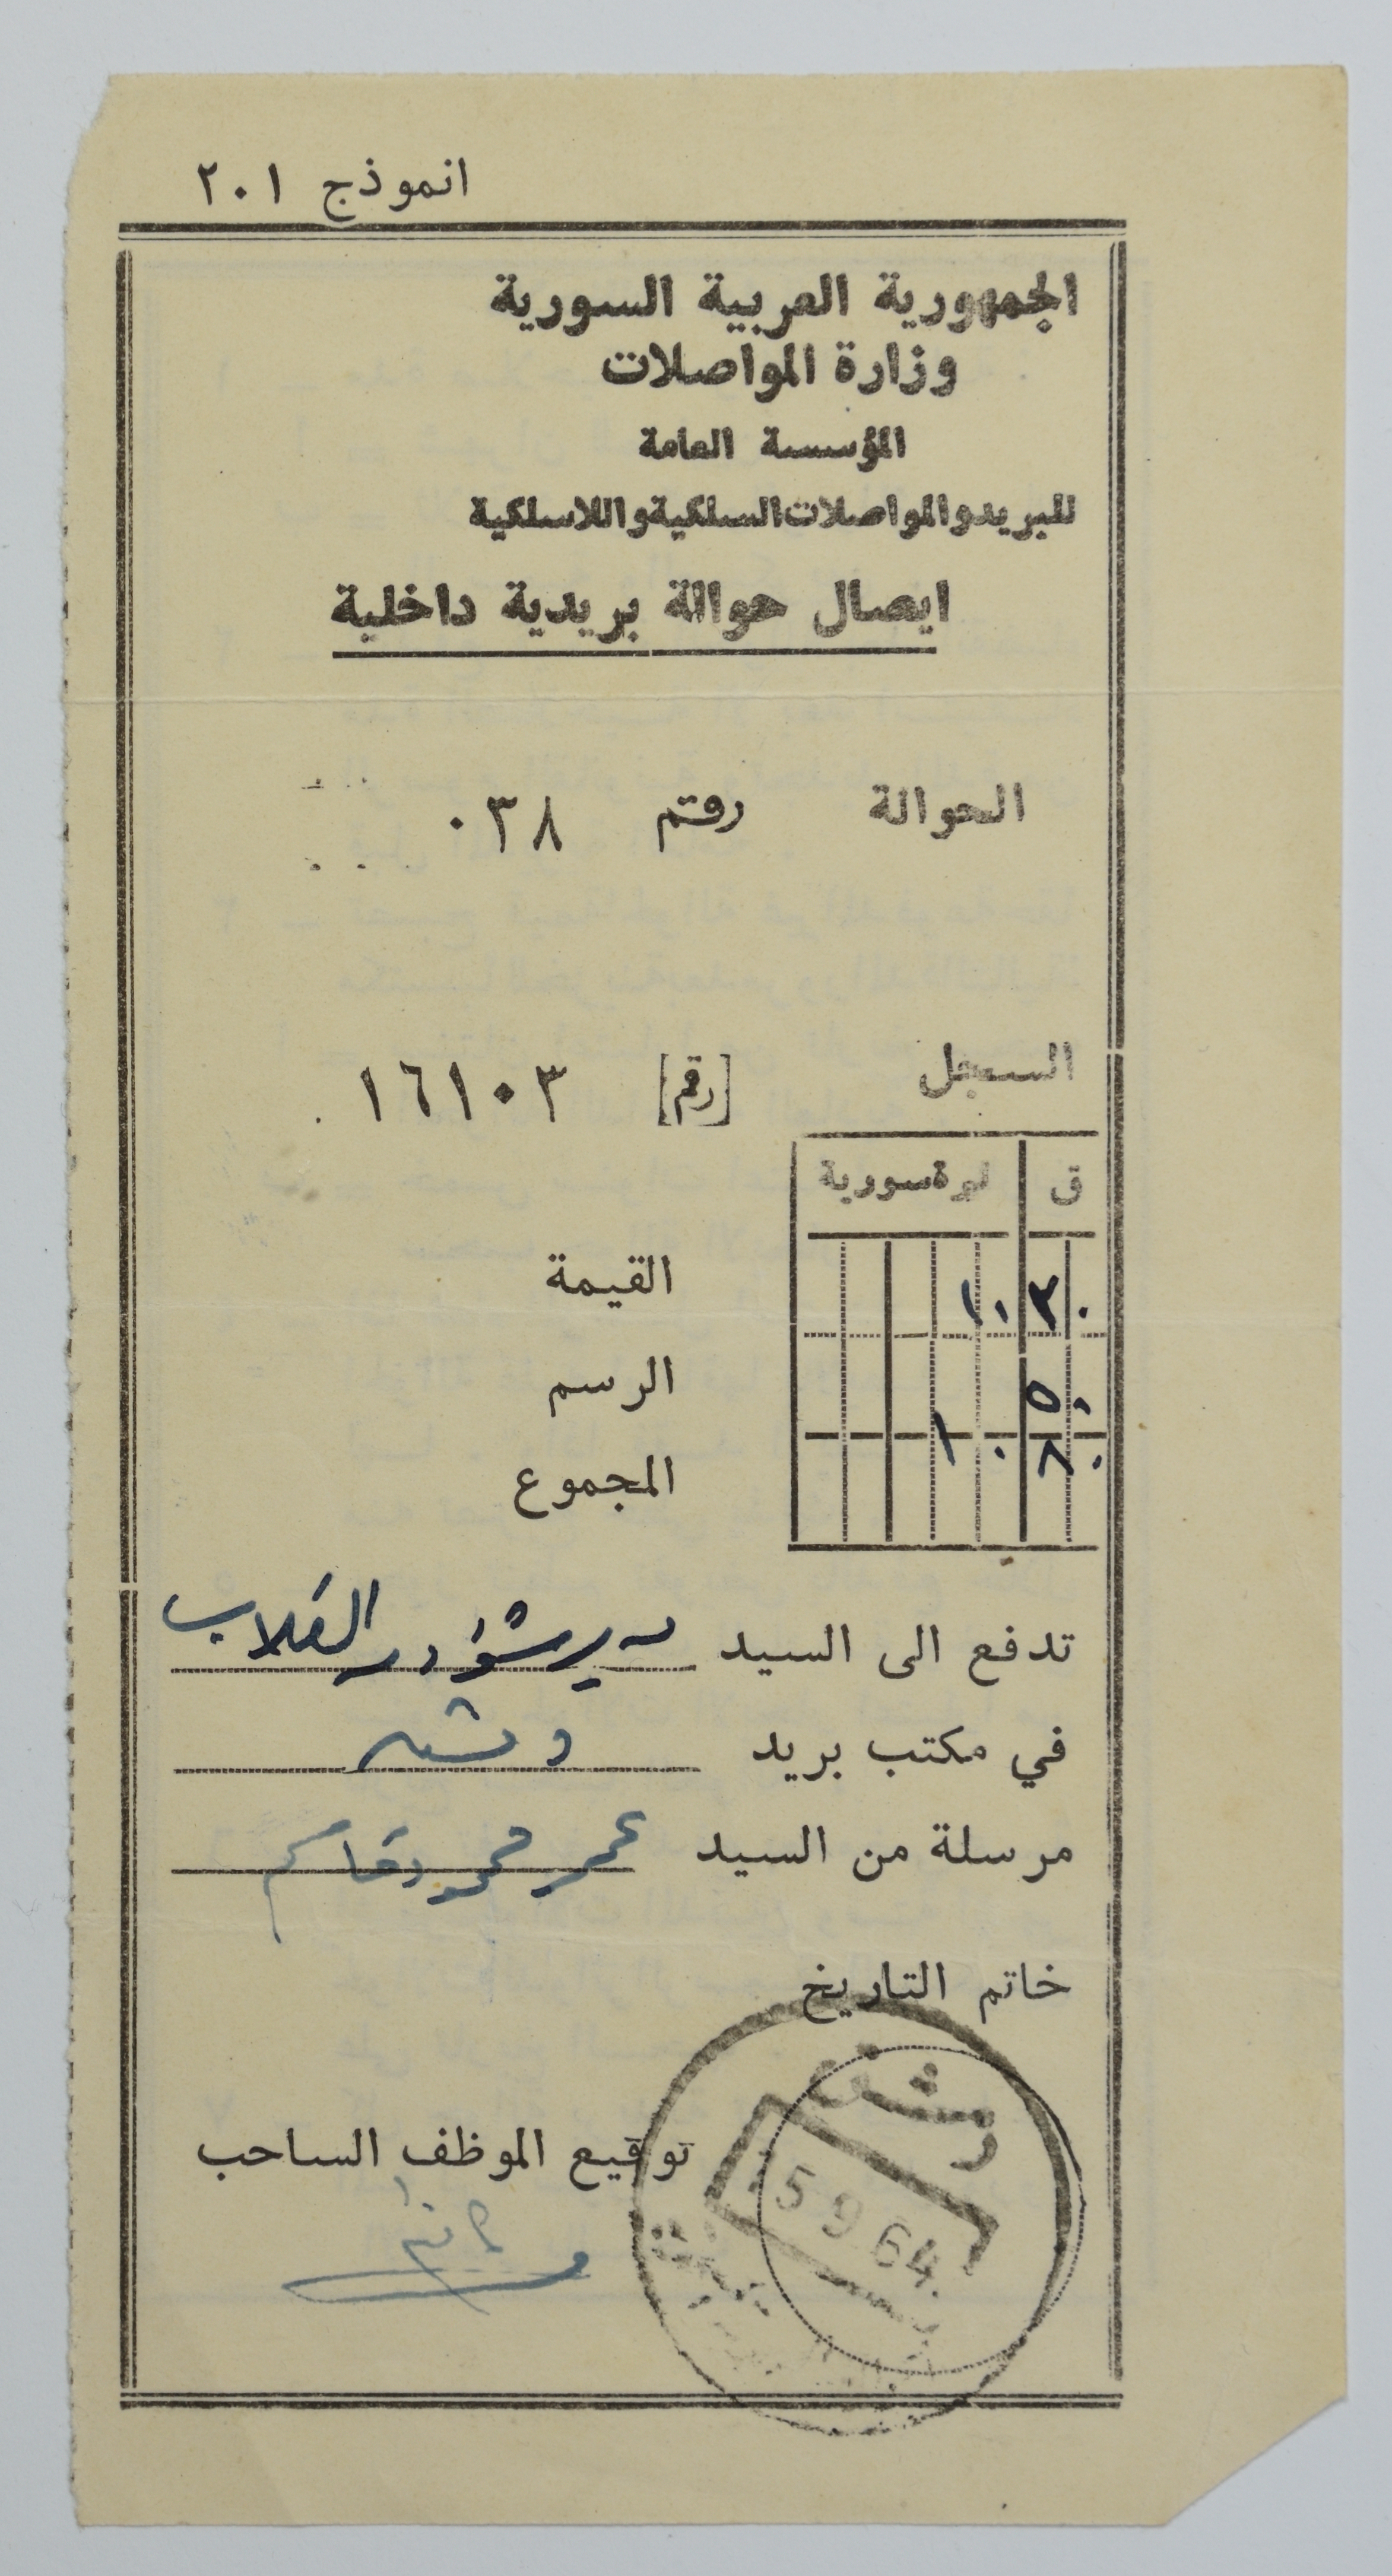 انموذج ٢٠١
الجمهورية العربية السورية
وزارة المواصلات
المؤسسة العامة
للبريد والمواصلات السلكية واللاسلكية
ايصال حوالة بريدية داخلية
الحوالة رقم ٠٣٨
السجل [رقم] ١٦١٠٣
ق ليرة سورية
القيمة ٣٠ ١٠
الرسم ٥٠
المجموع ٨٠ ١٠
تدفع الى السيد مدير شؤون الطلاب
في مكتب بريد دمشق
مرسلة من السيد عمر محمود قاسم
خاتم التاريخ
دمشق
5 9 64
توقيع الموظف الساحب